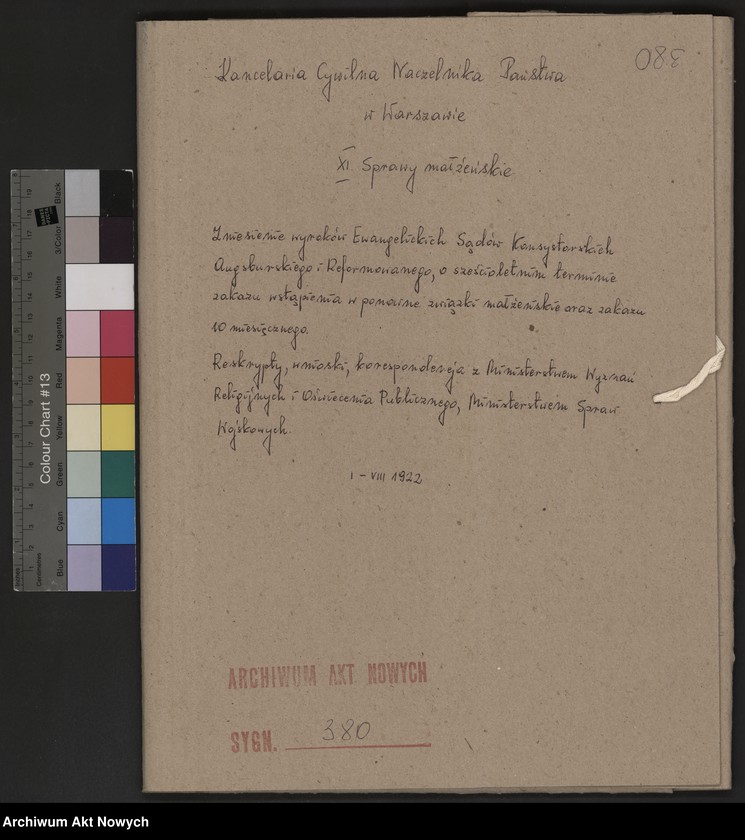 380
Kancelaria Cywilna Naczelnika Państwa
w Warszawie
XI Sprawy małżeńskie
Zniesienie wyroków Ewangelickich Sądów Konsystorskich
Augsburskiego i Reformowanego, o sześcioletnim terminie
zakazu wstąpienia w ponowne związki małżeńskie oraz zakazu
10 miesięcznego.
Reskrypty, wnioski, korespondencja z Ministerstwem Wyznań
Religijnych i Oświecenia Publicznego, Ministerstwem Spraw
Wojskowych.
I - VIII 1922
ARCHIWUM AKT NOWYCH
SYGN. 380
Colour Chart #13
Black
3/Color
White
Magenta
Red
Yellow
Green
Cyan
Blue
Centimetres
Inches
Archiwum Akt Nowych